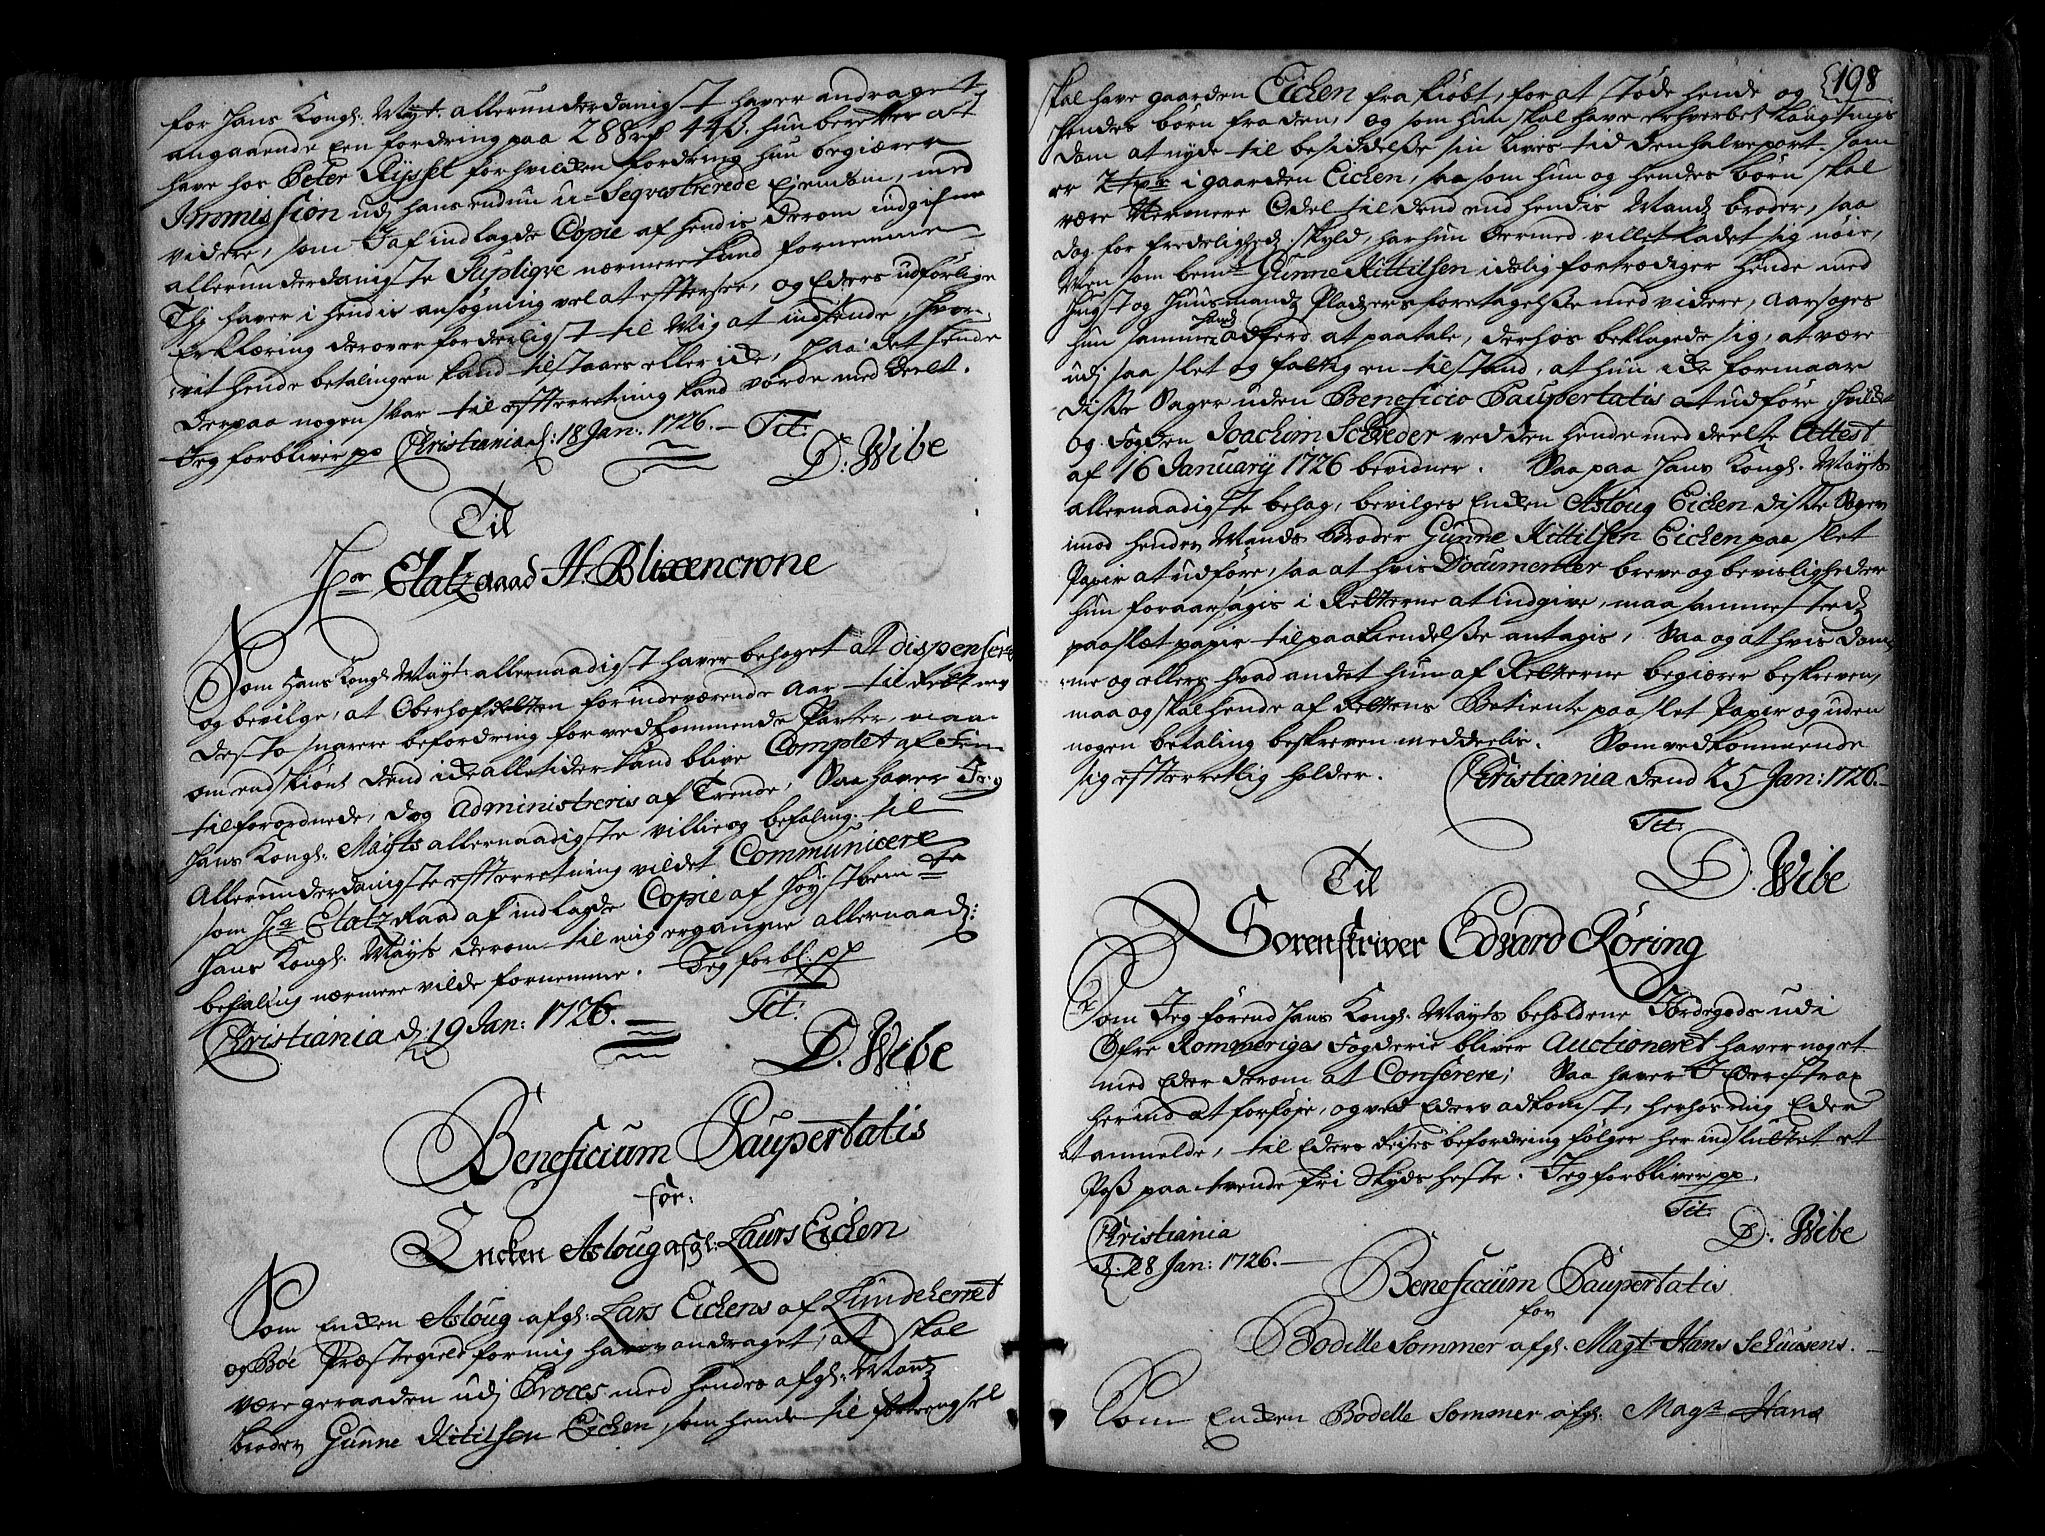 for Hans Kongl: Mayt. allerunderdanigst haver andraget
angaaende Een fordring paa 288 rd 44 ß. hun beretter at
have hos Peter Rÿssel for hvilken fordring hun begiærer
Immission udj hans endnu u-Seqvestrerede Ejendom, med
videre, som I af indlagde Copie af hendis derom indgifne
allerunderdanigste Supliqve nærmere kand fornemme
Thj haver i hendis ansøgning vel at efftersee, og Eders udførlige
Erklæring derover forderligst til Mig at indsende, hvor-
vit hende betalingen kand tilstaaes eller icke, saa det hende
derpaa nogen svar til effterretning kand vorde meddeelt.
Jeg forbliver pp Christiania d: 18 Jan: 1726. Tit:
D: Wibe
Til
Hr Etatz Raad H. Blixencrone
Som Hans Kongl: Mayt: allernaadigst haver behaget at dispensere
og bevilge, at Oberhofretten for indeværende Aar til Retternes
desto snarere befordring for vedkommende Parter, maa
om endskiønt dend icke alletider kand blive Complet af Fem
tilforordnede, dog administreris af Trende, Saa haver Jeg
Hans Kongl: Mayts allernaadigste villie og befaling til
Allerunderdanigste effterretning vildet Communicere
som Hr Etatz Raad af indlagde Copie af Høystbemte
Hans Kongl: Mayts derom til mig ergangne allernaad:
befaling nærmere vilde fornemme. Jeg forbl: pp
Christiania d: 19 Jan: 1726. Tit:
D. Wibe
Beneficium Paupertatis
for:
Encken Asloug afgl: Laurs Eichen
Som Encken Asloug afgl: Lars Eichens af Lundeherret
og Bøe Præstegield for mig haver andraget, at skal
være geraaden udj Proces med hendes afgl: Mands
broder Gunne Kitilsen Eichen, som hende til fortrengsel
198
skal have gaarden Eichen frakiøbt, for at støde hende og
hendes børn fra den, og som hun skal have erhverbet Laugtings
dom at nyde til besiddelse sin livs tid den halve part som
er 2 i gaarden Eichen, saa som hun og hendes børn skal
være nermere Odel til dend end hendis Mands broder, saa
dog for fredeligheds skyld, har hun dermed villet ladet sig nøie,
Men som bemte Gunne Kittilsen idelig fortrødiger hende med
Hugst og Huusmands Pladsers foretagelse med videre, aarsages
hun samme hands adferd at paatale, derhos beklagede sig, at være
udj saa slet og fattig en tilstand, at hun icke formaar
disse Sager uden Beneficio Paupertatis at udføre, hvilket
og Fogden Joachim Schrøder ved den hende meddeelte Attest
af 16 January 1726 bevidner. Saa paa Hans Kongl: Mayts
allernaadigste behag, bevilges Encken Asloug Eichen disse Sager
imod hendes Mands Broder Gunne Kittilsen Eichen paa slet
Papir at udføre, saa at hvis Documenter breve og bevisligheder
hun foraarsagis i Retterne at indgive, maa sammesteds
paa slet papir til paakiendelse antagis, Saa og at hvis dom-
me og ellers hvad andet hun af Retterne begiærer beskreven,
maa og skal hende af Rettens Betiente paa slet Papir og uden
nogen betaling beskreven meddeelis. Som vedkommende
sig effterretlig holder. Christiania dend 25 Jan: 1726.
Tit:
D: Wibe
Til
Sorenskriver Edvard Røring
Som Jeg førend Hans Kongl: Mayts beholdene Jordegods udi
Øfre Rommeriges Fogderie bliver Auctioneret haver noget
med Eder derom at Conferere; Saa haver I Eder strax
herind at forføje, og ved Eders adkomst, herhos mig Eder
at anmelde, til Eders Reises befordring følger her indsluttet et
Pass paa tvende fri Skyds heste. Jeg forbliver pp.
Tit:
Christiania D: Wibe
d. 28 Jan: 1726.
Beneficium Paupertatis
for
Bodille Sommer afgl. Magt Hans Seluusens.
Som Encken Bodelle Sommer afgl. Magt Hans